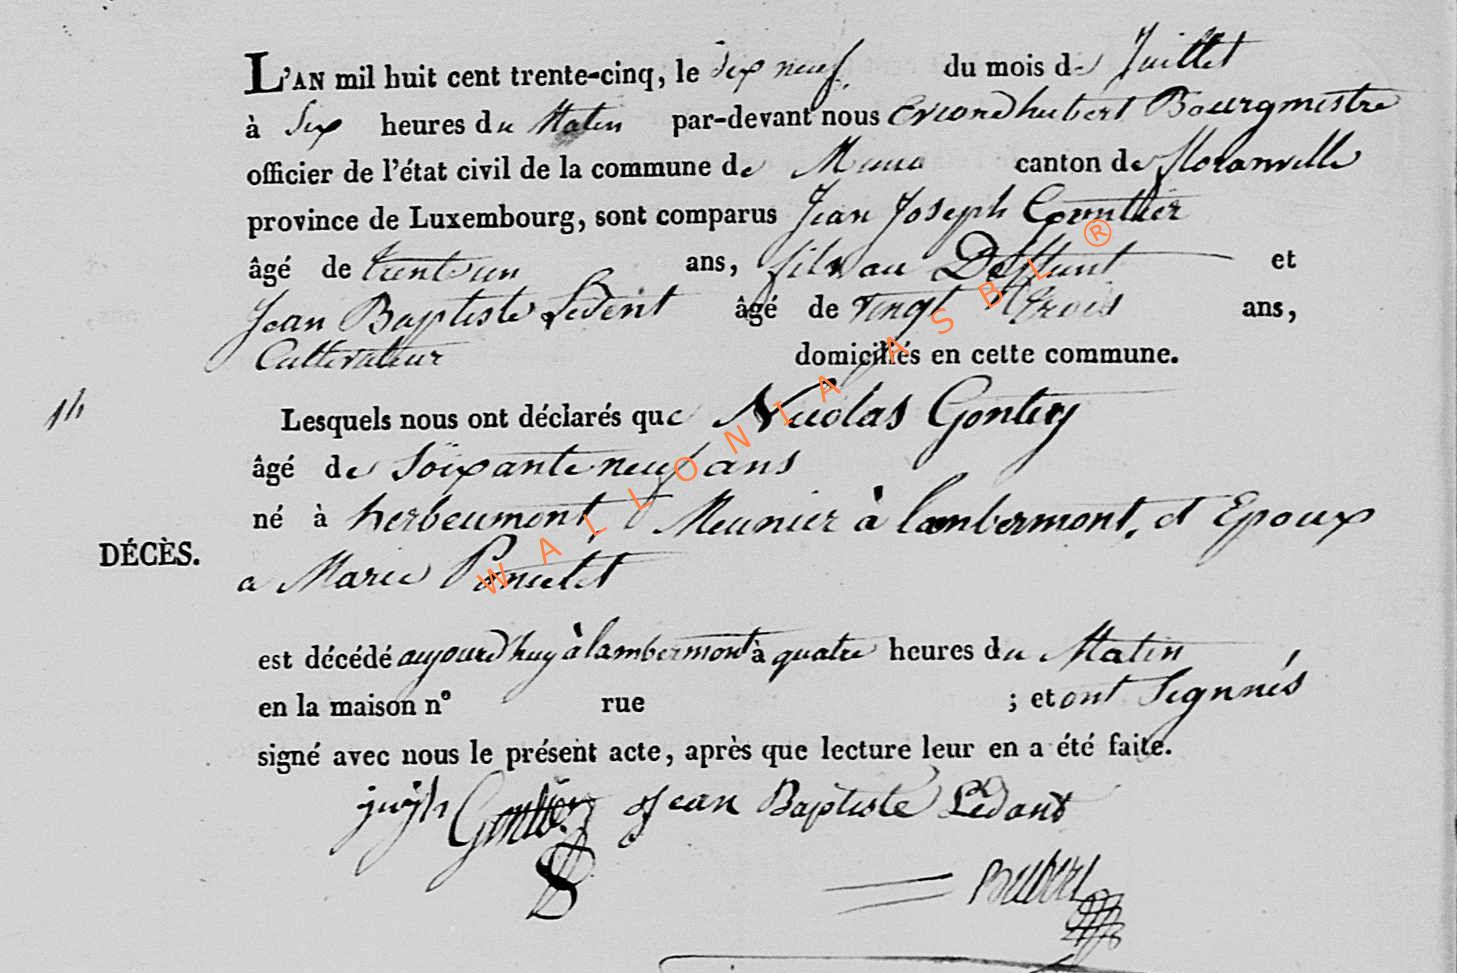 L'AN mil huit cent trente-cinq, le dix neuf du mois de Juillet
à Six heures du Matin par-devant nous hubert Bourgmestre
officier de l'état civil de la commune de Muno canton de floranville
province de Luxembourg, sont comparus Jean Joseph Gonthier
âgé de trente un ans, fils au Deffunt et
Jean Baptiste Ledent âgé de vingt trois ans,
Cultivateur domiciliés en cette commune.
14
Lesquels nous ont déclarés que Nicolas Gontier
âgé de Soixante neuf ans
né à herbeumont, Meunier à lambermont, et Epoux
DÉCÈS.
a Marie Poncelet
est décédé aujourdhuy à lambermont à quatre heures du Matin
en la maison nº rue ; et ont Signnés
signé avec nous le présent acte, après que lecture leur en a été faite.
Gontier Jean Baptiste Ledant
WALLONIA ASBL ®